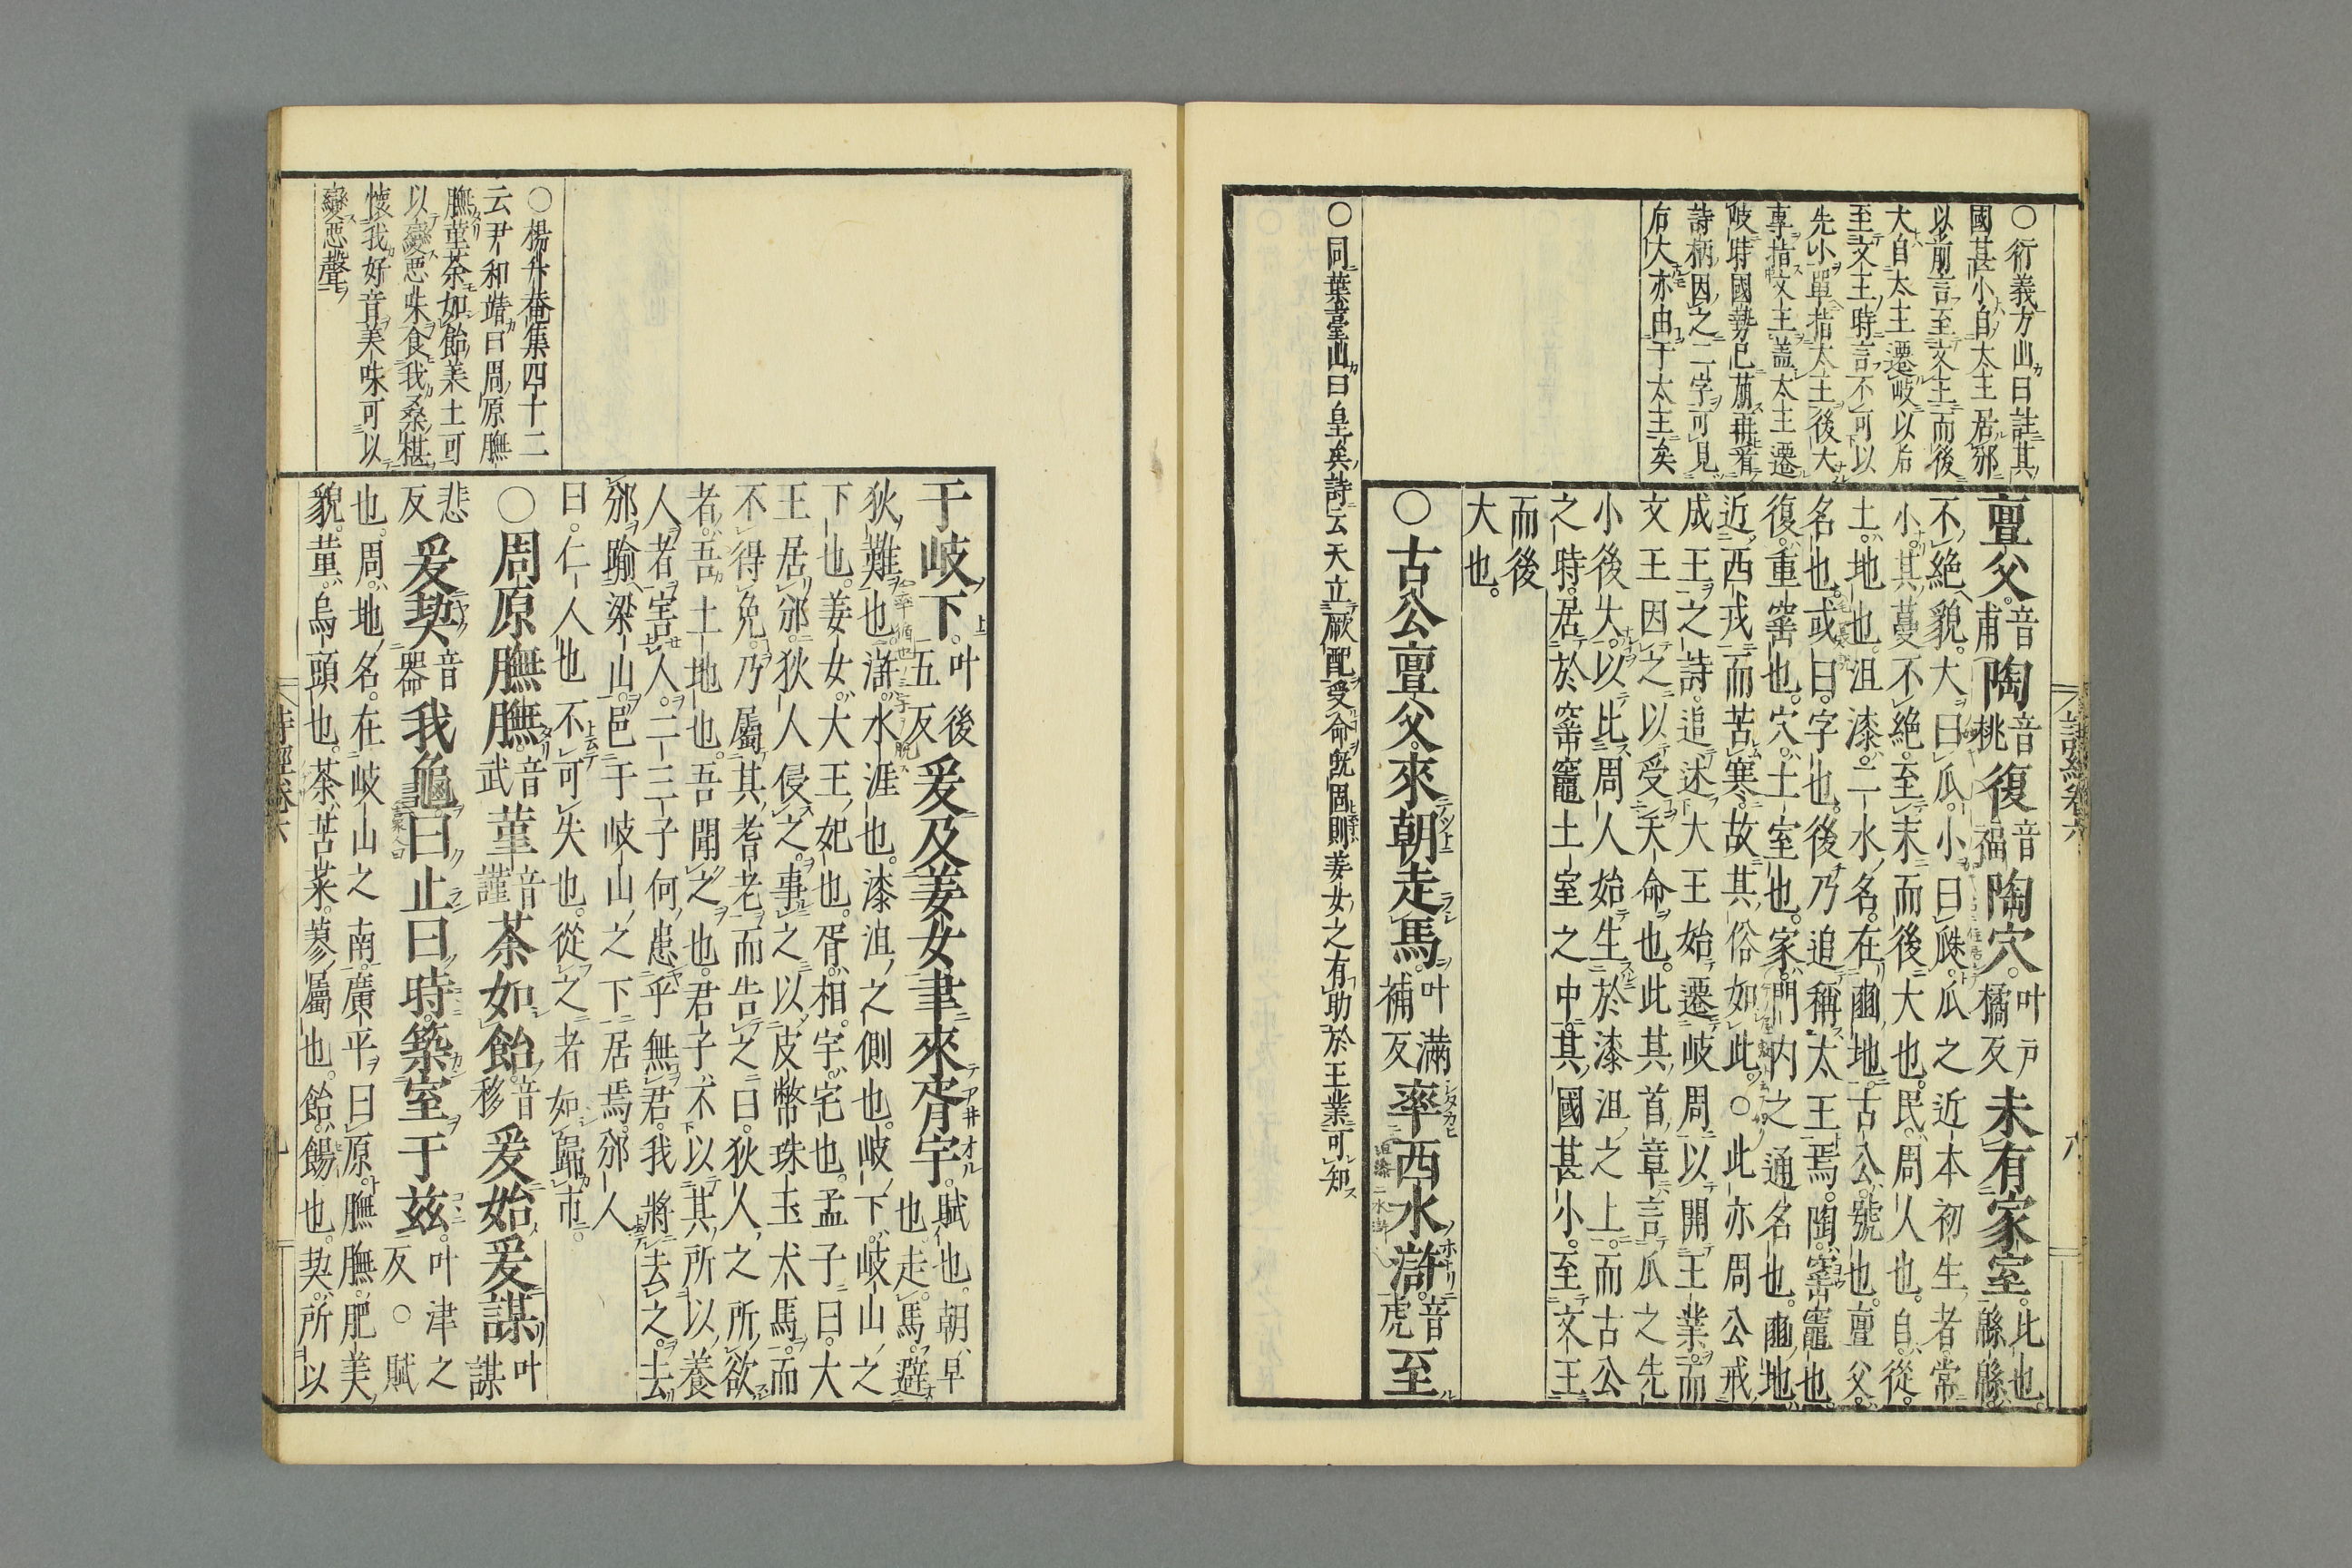 〇衍義方山曰註其
國甚小自太王居邠
以前言至文王而後
大自太王遷岐以后
至文王時言不可以
先小單指太王後大
專指文王蓋太王遷
岐時國勢已萠再看
詩柄因之二字可見
后大亦由于太王矣
〇同葉臺山曰皇矣詩云天立厥配受命既固則姜女之有助於王業可知
亶父音甫陶音桃復音福陶穴叶戸橘反未有家室比也緜緜
不絶貌大曰瓜小曰瓞瓜之近本初生者常
小其蔓不絶至末而後大也民周人也自從
土地也沮漆二水名在豳地古公號也亶父
名也或曰字也後乃追稱太王焉陶窰竈也
復重窰也穴土室也家門内之通名也豳地
近西戎而苦寒故其俗如此〇此亦周公戒
成王之詩追述大王始遷岐周以開王業而
文王因之以受天命也此其首章言瓜之先
小後大以比周人始生於漆沮之上而古公
之時居於窰竈土室之中其國甚小至文王
而後
大也
〇古公亶父來朝走馬叶滿補反率西水滸音虎至
詩經卷六
八
〇楊升菴集四十二
云尹和靖曰周原膴
膴菫荼如飴美土可
以變惡味食我桑椹
懷我好音美味可以
變惡聲
于岐下叶後五反爰及姜女聿來胥宇賦也朝早也走馬避
狄難也滸水涯也漆沮之側也岐下岐山之
下也姜女大王妃也胥相宇宅也孟子曰大
王居邠狄人侵之事之以皮幣珠玉犬馬而
不得免乃屬其耆老而告之曰狄人之所欲
者吾土地也吾聞之也君子不以其所以養
人者害人二三子何患乎無君我將去之去
邠踰梁山邑于岐山之下居焉邠人
曰仁人也不可失也從之者如歸市
〇周原膴膴音武菫音謹荼如飴音移爰始爰謀叶謀
悲反爰契音器我龜曰止曰時築室于茲叶津之反〇賦
也周地名在岐山之南廣平曰原膴膴肥美
貌菫烏頭也荼苦菜蓼屬也飴餳也契所以
詩經卷六
九